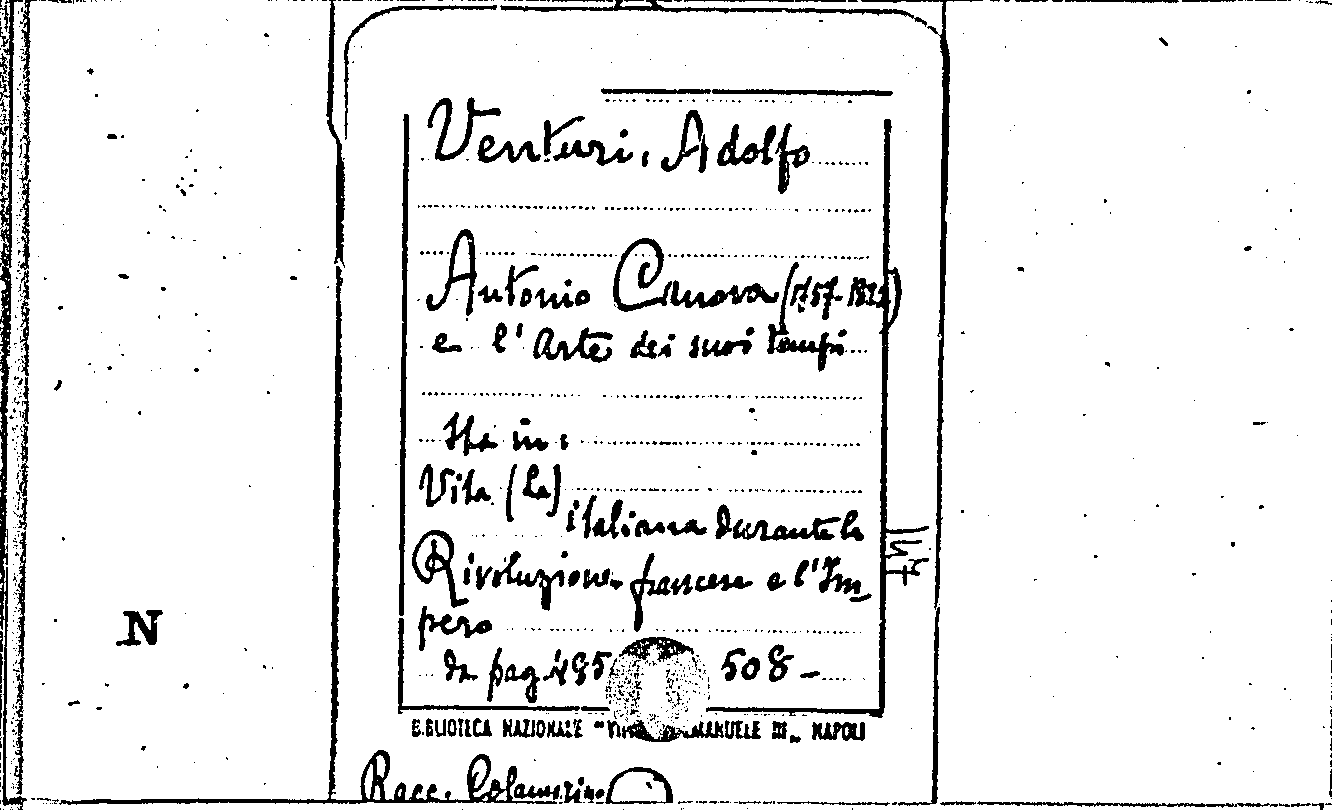 Venturi, Adolfo
Antonio Canova (1757-1822)
e l'Arte dei suoi tempi
Sta in:
Vita (La)
italiana durante la
Rivoluzione francese e l'Im-
pero
da pag. 495 508 -
BIBLIOTECA NAZIONALE "VITT. EMANUELE III„ NAPOLI
Racc.
N